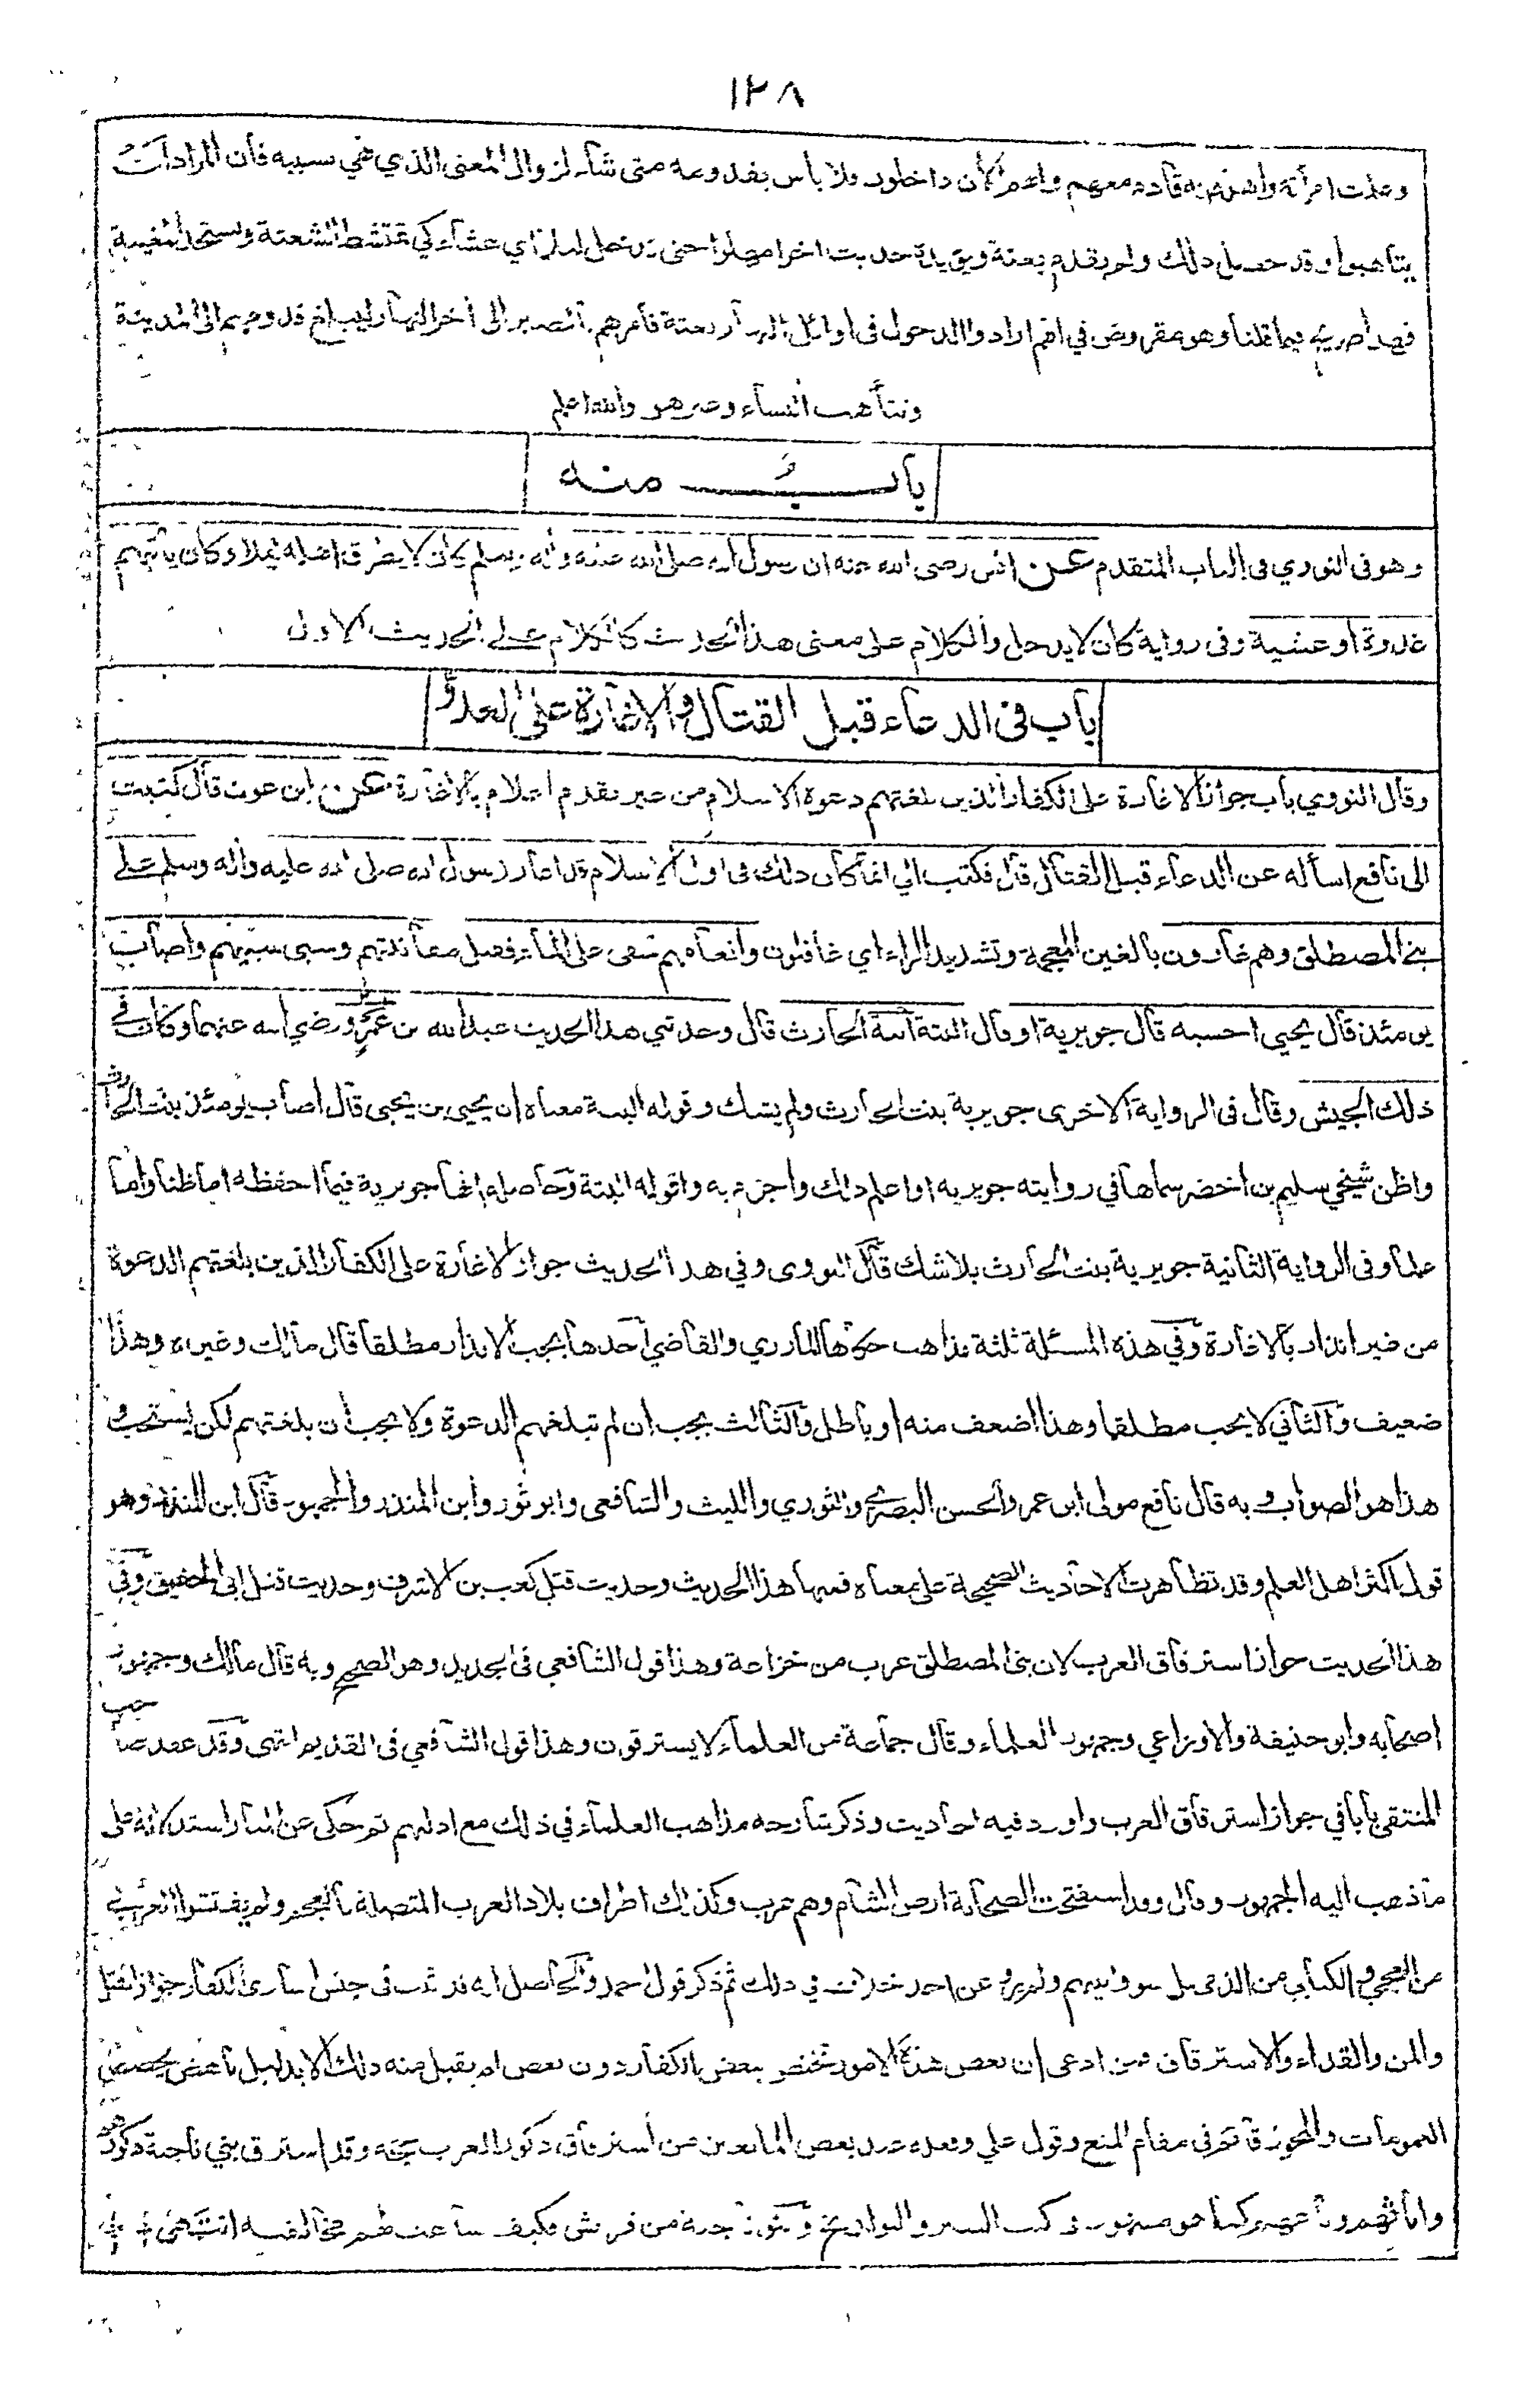 ١٢٨
وعلمت امرأته واهله انه قادم معهم وانهم الآن داخلون فلا بأس بقدومه متى شاء لزوال المعنى الذي نهي بسببه فأن المراد ان
يتأهبوا وقد حصل ذلك ولم يقدم بغتة ويؤيده حديث اخر امهلوا حتى ندخل ليلا اي عشاء كي تمتشط الشعثة وتستحد المغيبة
فهذا صريح فيما قلنا وهو مفروض في انهم ارادوا الدخول في اوائل النهار بغتة فأمرهم بالصبر الى أخر النهار ليبلغ قدومهم الى المدينة
وتتأهب النساء وغيرهن والله اعلم
بابٌ منه
وهو في النووي في الباب المتقدم عن انس رضي الله عنه ان رسول الله صلى الله عليه وآله وسلم كان لا يطرق اهله ليلا وكان يأتيهم
غدوة او عشية وفي رواية كان لا يدخل والكلام على معنى هذا الحديث كالكلام على الحديث الاول
باب في الدعاء قبل القتال والاغارة على العدو
وقال النووي باب جواز الاغارة على الكفار الذين بلغتهم دعوة الاسلام من غير تقدم اعلام بالاغارة عن ابن عون قال كتبت
الى نافع اسأله عن الدعاء قبل القتال قال فكتب الي انما كان ذلك في اول الاسلام قد اغار رسول الله صلى الله عليه وآله وسلم على
بني المصطلق وهم غارون بالغين المعجمة وتشديد الراء اي غافلون وأنعامهم تسقى على الماء فقتل مقاتلتهم وسبى سبيهم واصاب
يومئذ قال يحيى احسبه قال جويرية او قال البتة ابنة الحارث قال وحدثني هذا الحديث عبد الله بن عمر رضي الله عنهما وكان في
ذلك الجيش وقال في الرواية الاخرى جويرية بنت الحارث ولم يشك وقوله البتة معناه ان يحيى بن يحيى قال أصاب يومئذ بنت الحارث
واظن شيخي سليم بن اخضر سماها في روايته جويرية او اعلم ذلك واجزم به واقوله البتة وحاصله انها جويرية فيما احفظه اما ظنا واما
علما وفي الرواية الثانية جويرية بنت الحارث بلا شك قال النووي وفي هذا الحديث جواز الاغارة على الكفار الذين بلغتهم الدعوة
من غير انذار بالاغارة وفي هذه المسئلة ثلثة مذاهب حكاها المازري والقاضي احدها يجب الانذار مطلقا قال مالك وغيره وهذا
ضعيف والثاني لا يجب مطلقا وهذا اضعف منه او باطل والثالث يجب ان لم تبلغهم الدعوة ولا يجب ان بلغتهم لكن يستحب و
هذا هو الصواب وبه قال نافع مولى ابن عمر والحسن البصري والثوري والليث والشافعي وابو ثور وابن المنذر والجمهور قال ابن المنذر وهو
قول اكثر اهل العلم وقد تظاهرت الاحاديث الصحيحة على معناه فمنها هذا الحديث وحديث قتل كعب بن الاشرف وحديث قتل ابي الحقيق وفي
هذا الحديث جواز استرقاق العرب لان بني المصطلق عرب من خزاعة وهذا قول الشافعي في الجديد وهو الصحيح وبه قال مالك وجمهور
اصحابه وابو حنيفة والاوزاعي وجمهور العلماء وقال جماعة من العلماء لا يسترقون وهذا قول الشافعي في القديم انتهى وقد عقد صاحب
المنتقى بابا في جواز استرقاق العرب واورد فيه احاديث وذكر شارحه مذاهب العلماء في ذلك مع ادلتهم ثم حكى عن المنار استدلاله على
ما ذهب اليه الجمهور وقال وقد استفتحت الصحابة ارض الشام وهم عرب وكذلك اطراف بلاد العرب المتصلة بالعجم ولم يفتشوا العربي
من العجمي والكتابي من الذمي بل سووا بينهم ولم يرو عن احد خلاف في ذلك ثم ذكر قول احمد والحاصل انه قد ثبت في جنس اسارى الكفار جواز القتل
والمن والفداء والاسترقاق فمن ادعى ان بعض هذه الامور تختص ببعض الكفار دون بعض لم يقبل منه ذلك الا بدليل ناهض يخصص
العمومات والمجوز قائم في مقام المنع وقول علي وفعله عند بعض المانعين من استرقاق ذكور العرب حجة وقد استرق بني ناجية ذكورهم
واناثهم وباعهم كما هو مشهور في كتب السير والتواريخ وبنو ناجية من قريش فكيف ساغت لهم مخالفته انتهى